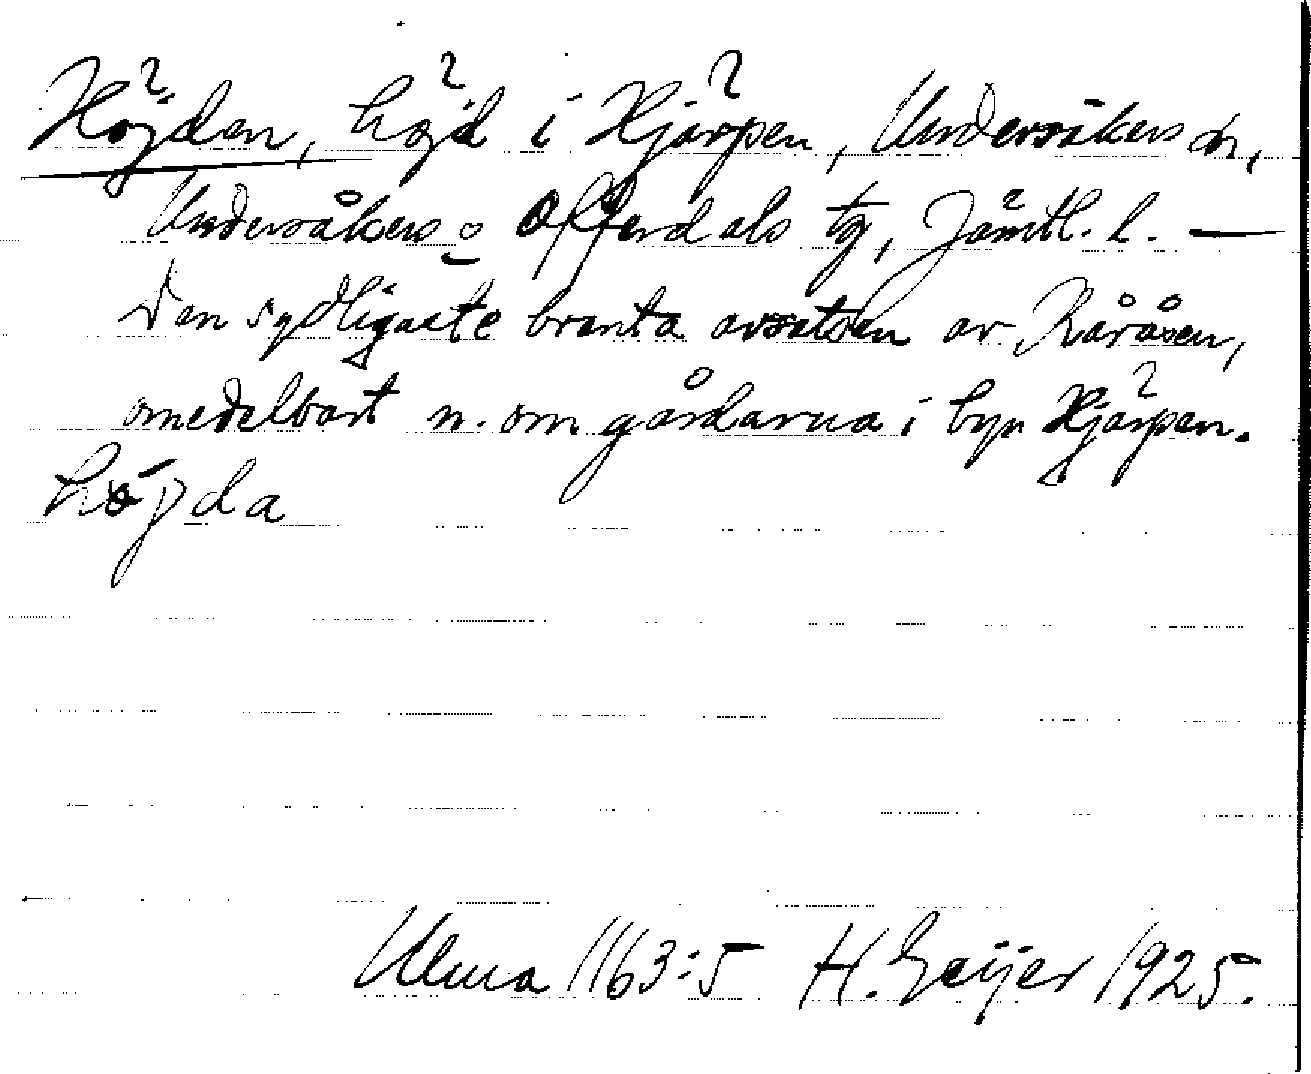 Höjden, höjd i Hjärpen, Undersåkers sn,
Undersåkers o Offerdals tg, Jämtl. l. —
Den sydligaste branta avsatsen av Råråsen,
omedelbart n. om gårdarna i byn Hjärpen.
höjda
Ulma 1163:5 H. Geijer 1925.